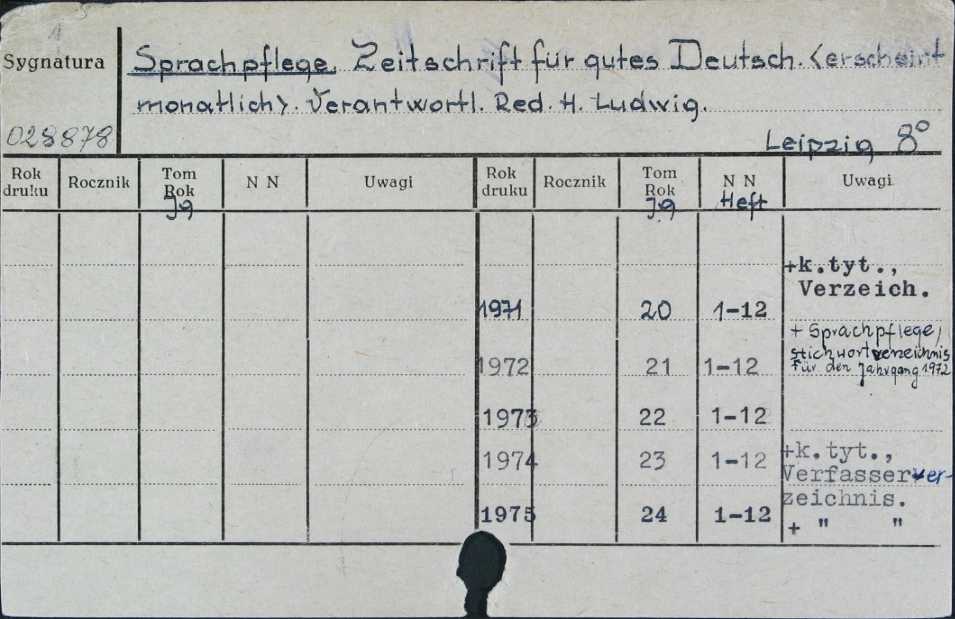 Sygnatura
Sprachpflege. Zeitschrift für gutes Deutsch. <erscheint
monatlich>. Verantwortl. Red. H. Ludwig.
028878
Leipzig 8°
Rok druku Rocznik Tom Rok Jg N N Uwagi Rok druku Rocznik Tom Rok Jg N N Heft Uwagi
+k.tyt.,
Verzeich.
1971 20 1-12
+ Sprachpflege,
stichwortverzeichnis
für den Jahrgang 1972
1972 21 1-12
1973 22 1-12
1974 23 1-12 +k.tyt.,
Verfasserver-
zeichnis.
1975 24 1-12 + " "